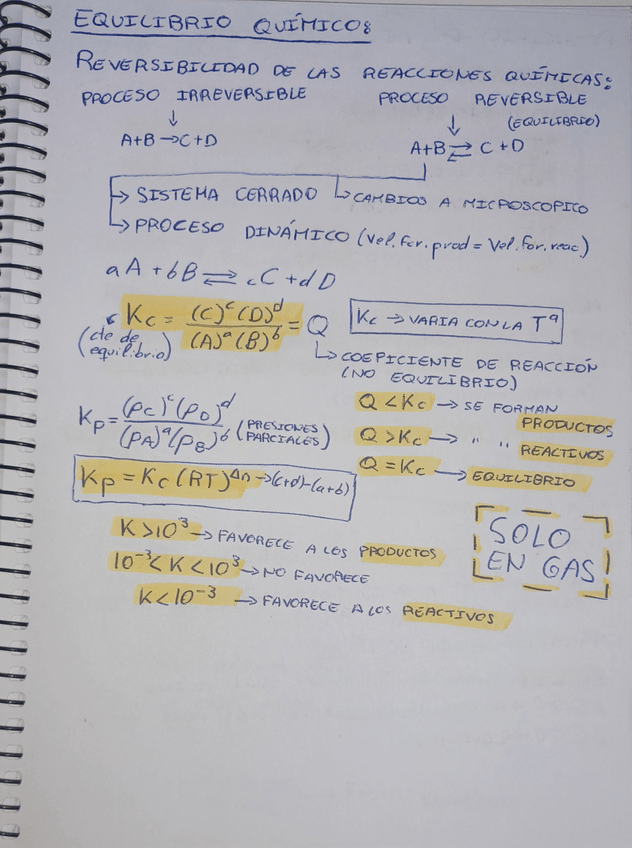 EQUILIBRIO QUÍMICO:
REVERSIBILIDAD DE LAS REACCIONES QUÍMICAS:
PROCESO IRREVERSIBLE
↓
A+B → C+D
PROCESO REVERSIBLE
(EQUILIBRIO)
↓
A+B ⇌ C+D
→ SISTEMA CERRADO
→ CAMBIOS A MICROSCOPICO
→ PROCESO DINÁMICO (Vel.for.prod = Vel.for.reac)
aA + bB ⇌ cC + dD
Kc = (C)^c (D)^d / (A)^a (B)^b = Q
(cte de equilibrio)
Kc → VARIA CON LA Tª
→ COEFICIENTE DE REACCIÓN
(NO EQUILIBRIO)
Q < Kc → SE FORMAN PRODUCTOS
Q > Kc → " " REACTIVOS
Q = Kc → EQUILIBRIO
Kp = (pC)^c (pD)^d / (pA)^a (pB)^b (PRESIONES PARCIALES)
Kp = Kc (RT)^Δn → (c+d)-(a+b)
SOLO
EN GAS
K > 10³ → FAVORECE A LOS PRODUCTOS
10⁻³ < K < 10³ → NO FAVORECE
K < 10⁻³ → FAVORECE A LOS REACTIVOS